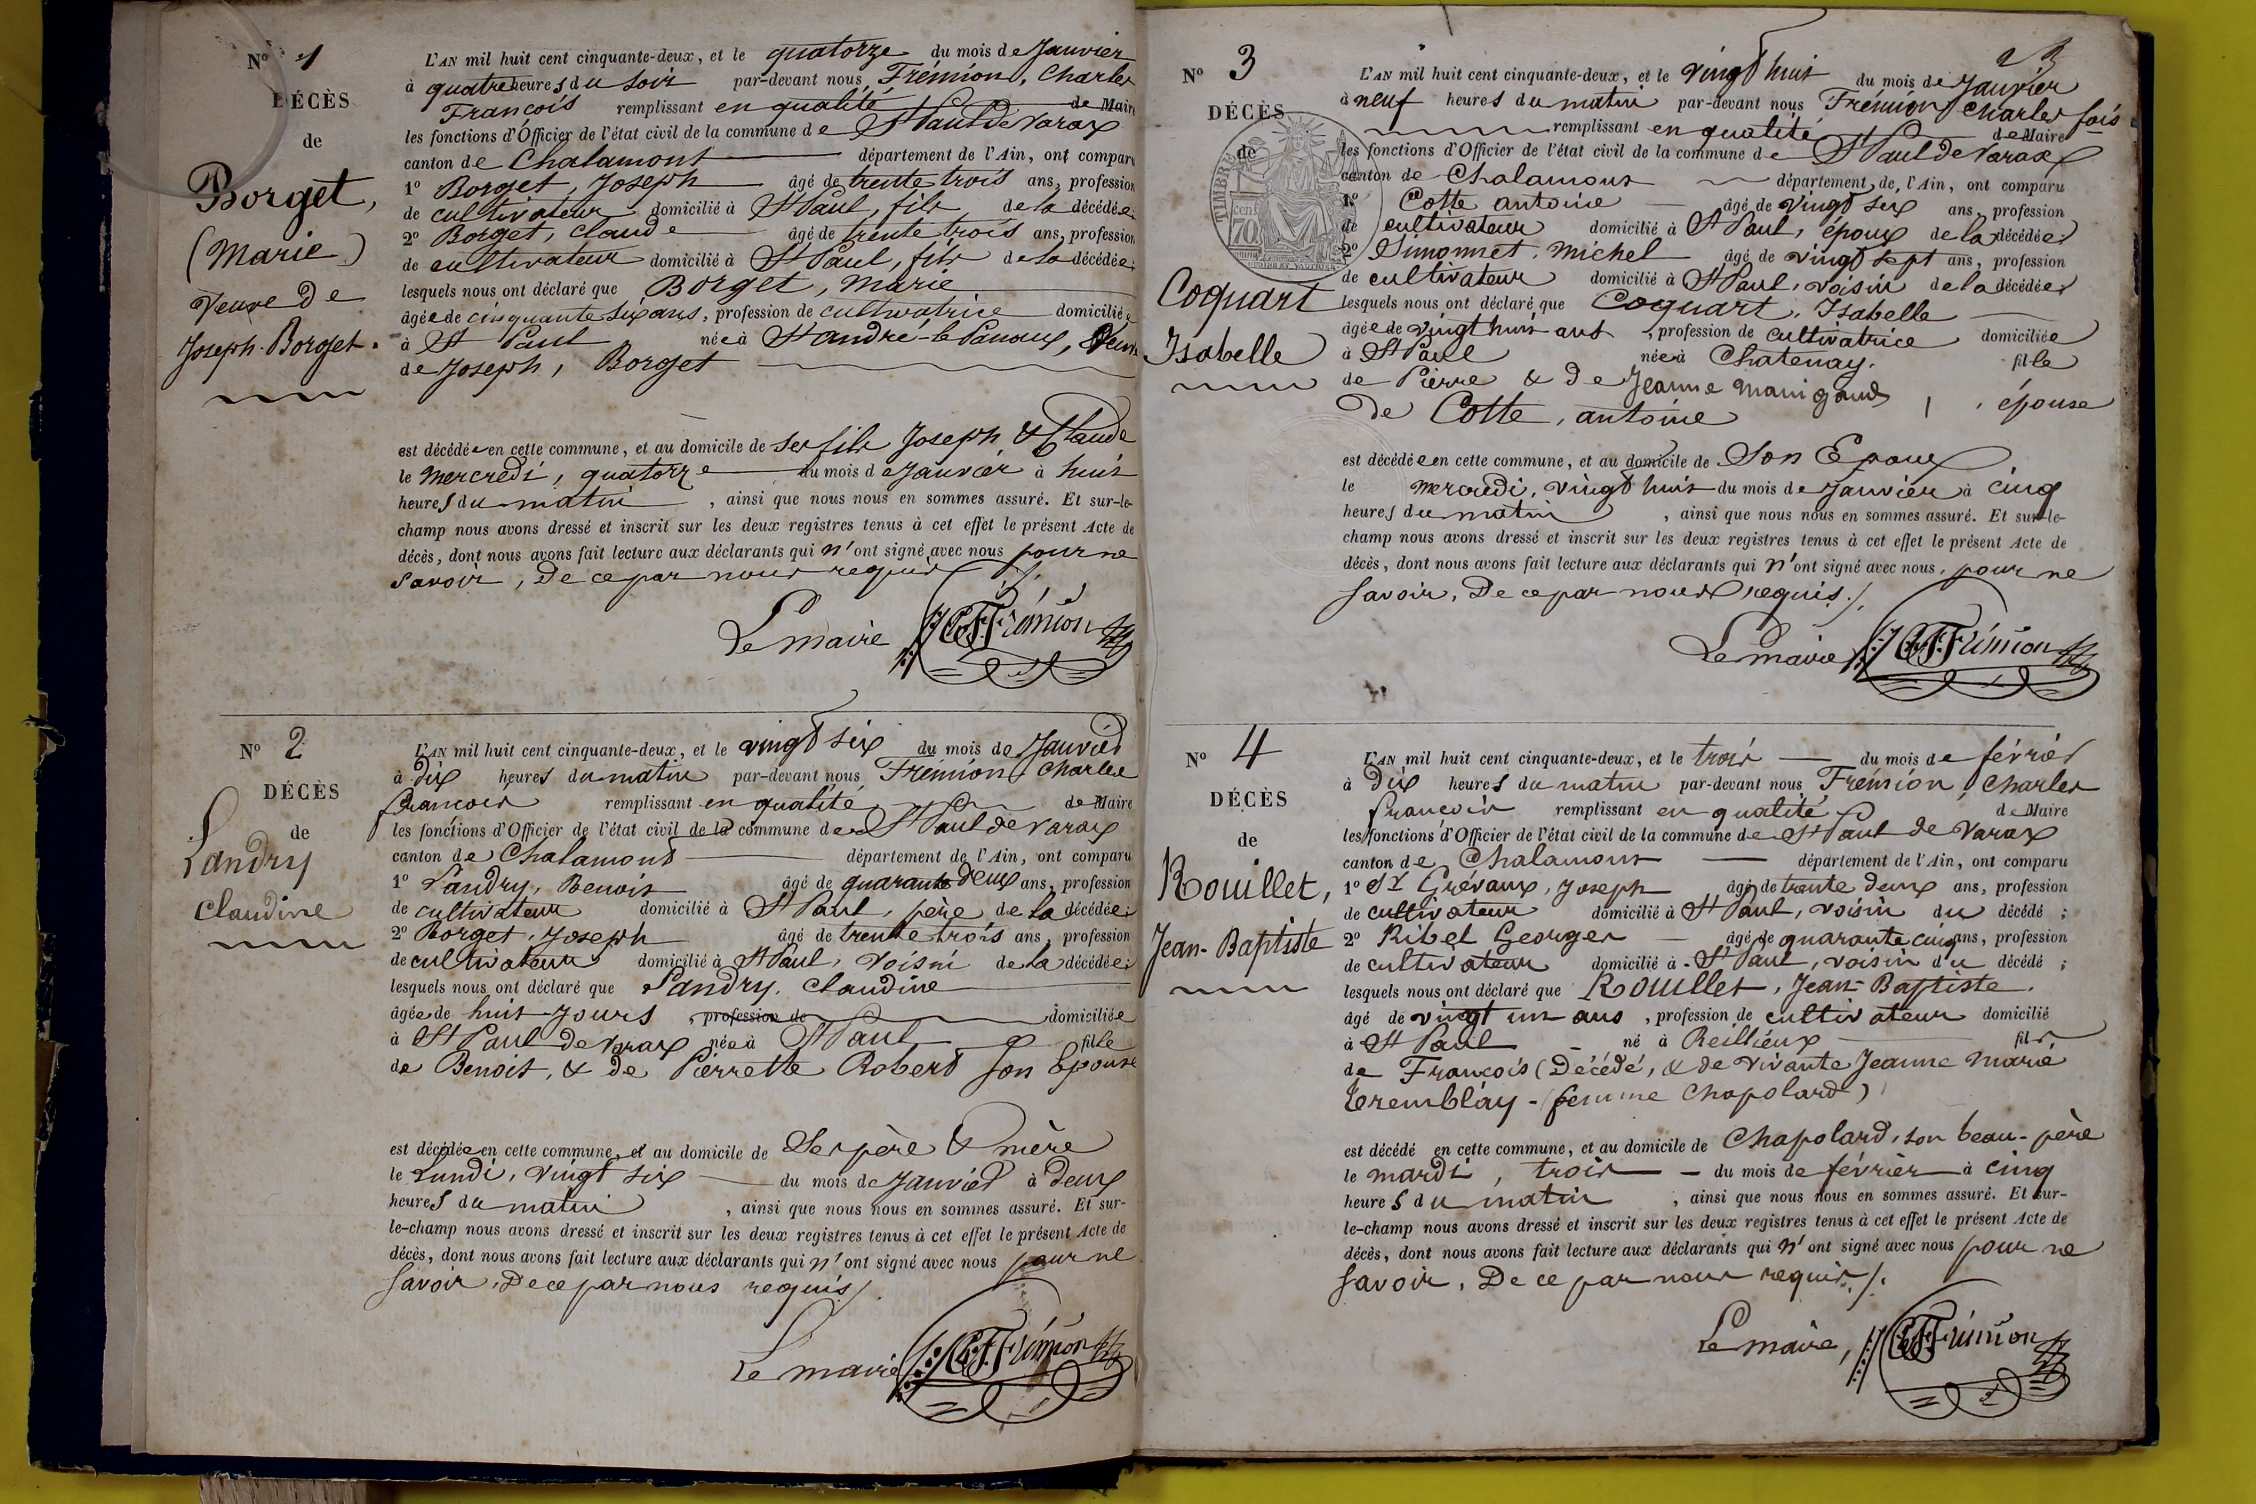 Nº 1
DÉCÈS
de
Borget,
(Marie)
Veuve de
Joseph Borget.
L'AN mil huit cent cinquante-deux, et le quatorze du mois de Janvier
à quatre heures du soir par-devant nous Frémion, Charles
François remplissant en qualité de Maire
les fonctions d'Officier de l'état civil de la commune de St Paul de Varax
canton de Chalamont département de l'Ain, ont comparu
1º Borget, Joseph âgé de trente trois ans, profession
de cultivateur domicilié à St Paul, fils de la décédée;
2º Borget, Claude âgé de trente trois ans, profession
de cultivateur domicilié à St Paul, fils de la décédée;
lesquels nous ont déclaré que Borget, Marie
âgée de cinquante six ans, profession de cultivatrice domiciliée
à St Paul née à St andré-le Panoux, Veuve
de Joseph, Borget
est décédée en cette commune, et au domicile de ses fils Joseph & Claude
le mercredi, quatorze du mois de Janvier à huit
heures du matin, ainsi que nous nous en sommes assuré. Et sur-le-
champ nous avons dressé et inscrit sur les deux registres tenus à cet effet le présent Acte de
décès, dont nous avons fait lecture aux déclarants qui n'ont signé avec nous pour ne
savoir, De ce par nous requis ./.
Le maire Ch F Frémion
Nº 2
DÉCÈS
de
Landry
Claudine
L'AN mil huit cent cinquante-deux, et le vingt six du mois de Janvier
à dix heures du matin par-devant nous Frémion, Charles
François remplissant en qualité de Maire
les fonctions d'Officier de l'état civil de la commune de St Paul de Varax
canton de Chalamont département de l'Ain, ont comparu
1º Landry, Benoit âgé de quarante Deux ans, profession
de cultivateur domicilié à St Paul, père de la décédée;
2º Borget, Joseph âgé de trente trois ans, profession
de cultivateur domicilié à St Paul, Voisin de la décédée;
lesquels nous ont déclaré que Landry, Claudine
âgée de huit Jours, profession de domiciliée
à St Paul de Varax née à St Paul fille
de Benoit, & de Pierrette Robert son Epouse
est décédée en cette commune, et au domicile de Ses père & mère
le Lundi, vingt six du mois de Janvier à Deux
heures du matin, ainsi que nous nous en sommes assuré. Et sur-
le-champ nous avons dressé et inscrit sur les deux registres tenus à cet effet le présent Acte de
décès, dont nous avons fait lecture aux déclarants qui n'ont signé avec nous pour ne
savoir, De ce par nous requis/.
Le maire Ch F Frémion
3
Nº 3
DÉCÈS
de
Coquart
Isabelle
TIMBRE
70
L'AN mil huit cent cinquante-deux, et le vingt huit du mois de Janvier
à neuf heures du matin par-devant nous Frémion Charles fois
remplissant en qualité de Maire
les fonctions d'Officier de l'état civil de la commune de St Paul de Varax
canton de Chalamont département de l'Ain, ont comparu
1º Cotte antoine âgé de vingt six ans, profession
de cultivateur domicilié à St Paul, époux de la décédée;
2º Simonnet, michel âgé de vingt sept ans, profession
de cultivateur domicilié à St Paul, voisin de la décédée;
lesquels nous ont déclaré que Coquart, Isabelle
âgée de vingt huit ans, profession de cultivatrice domiciliée
à St Paul née à Chatenay. fille
de Pierre & de Jeanne Manigand, épouse
De Cotte, antoine
est décédée en cette commune, et au domicile de Son Epoux
le mercredi, vingt huit du mois de Janvier à cinq
heures du matin, ainsi que nous nous en sommes assuré. Et sur-le-
champ nous avons dressé et inscrit sur les deux registres tenus à cet effet le présent Acte de
décès, dont nous avons fait lecture aux déclarants qui n'ont signé avec nous, pour ne
savoir, De ce par nous requis./.
Le maire Ch F Frémion
Nº 4
DÉCÈS
de
Rouillet,
Jean-Baptiste
L'AN mil huit cent cinquante-deux, et le trois du mois de février
à Dix heures du matin par-devant nous Frémion, Charles
François remplissant en qualité de Maire
les fonctions d'Officier de l'état civil de la commune de St Paul de Varax
canton de Chalamont département de l'Ain, ont comparu
1º St Grévaux, Joseph âgé de trente deux ans, profession
de cultivateur domicilié à St Paul, voisin du décédé;
2º Ribet Georges âgé de quarante cinq ans, profession
de cultivateur domicilié à St Paul, voisin du décédé;
lesquels nous ont déclaré que Rouillet, Jean-Baptiste.
âgé de vingt un ans, profession de cultivateur domicilié
à St Paul né à Reillieux fils
de François (Décédé, & de vivante Jeanne Marie
Tremblay - (femme Chapolard)
est décédé en cette commune, et au domicile de Chapolard, son beau-père
le mardi, trois du mois de février à cinq
heures du matin, ainsi que nous nous en sommes assuré. Et sur-
le-champ nous avons dressé et inscrit sur les deux registres tenus à cet effet le présent Acte de
décès, dont nous avons fait lecture aux déclarants qui n'ont signé avec nous pour ne
savoir, De ce par nous requis./.
Le maire, Ch F Frémion